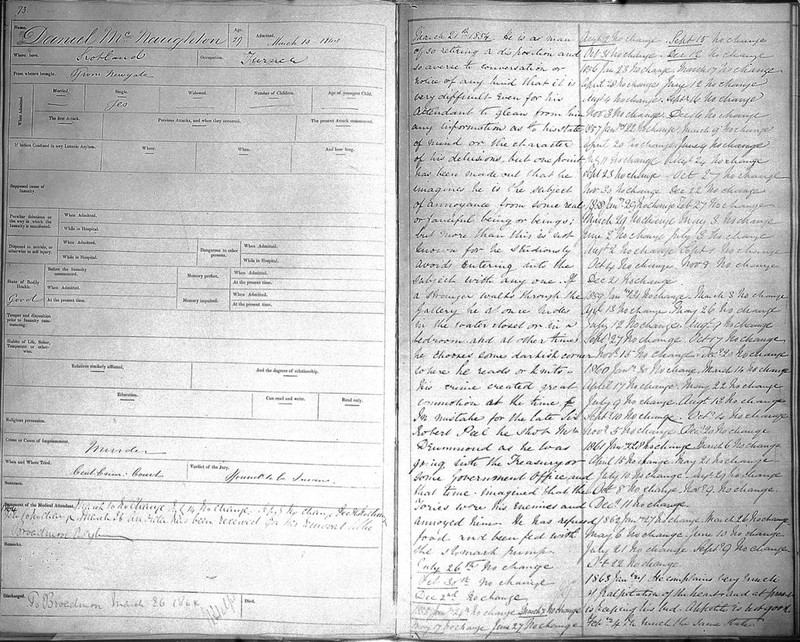 73
Name,
Daniel McNaughton
Age,
29
Admitted,
March 13 1843
Where born,
Scotland
Occupation,
Turner
From whence brought,
From Newgate
When Admitted.
Married.
Single.
Yes
Widowed.
Number of Children.
Age of youngest Child.
The first Attack.
Previous Attacks, and when they occurred.
The present Attack commenced.
If before Confined in any Lunatic Asylum.
Where.
When.
And how long.
Supposed cause of Insanity.
Peculiar delusions or the way in which the Insanity is manifested.
When Admitted.
While in Hospital.
Disposed to suicide, or otherwise to self injury.
When Admitted.
While in Hospital.
Dangerous to other persons.
When Admitted.
While in Hospital.
State of Bodily Health.
Good
Before the Insanity commenced.
When Admitted.
At the present time.
Memory perfect.
When Admitted.
At the present time.
Memory impaired.
When Admitted.
At the present time.
Temper and disposition prior to Insanity commencing.
Habits of Life, Sober, Temperate or otherwise.
Relations similarly afflicted,
And the degrees of relationship.
Education.
Can read and write.
Read only.
Religious persuasion.
Crime or Cause of Imprisonment.
Murder
When and Where Tried.
Cent. Crim. Court
Verdict of the Jury.
Found to be Insane
Sentence.
Statement of the Medical Attendant.
March 16 No change
No change
March 26 An order has been received for his removal to the
Broadmoor Asylum
Remarks.
Discharged.
To Broadmoor March 26 1864
Died.
March 21st 1854. He is a man
of so retiring a disposition and
so averse to conversation or
notice of any kind that it is
very difficult even for his
Attendant to glean from him
any information as to his state
of mind or the character
of his delusions, but one point
has been made out that he
imagines he is the subject
of annoyance from some real
or fanciful being or beings;
but more than this is not
known for he studiously
avoids entering into the
subject with any one. If
a stranger walks through the
Gallery he at once hides
in the water closet or in a
bedroom and at other times
he chooses some darkish corner
where he reads or knits.
His crime created great
commotion at the time
In mistake for the late Sir
Robert Peel he shot Mr
Drummond as he was
going into the Treasury or
some Government Office and
that time imagined that the
Tories were his enemies and
annoyed him. He has refused
food and been fed with
the stomach pump.
July 26th No change
Oct 30th no change
Dec 2nd No change
1855 Jan 24 No change March No change
May 17 No change June 27 No change
Augt No change Sept 15 No change
Oct 31 No change Dec 12 No change
1856 Jan 23 No change March 17 No change
April 23 No change May 12 No change
Augt 4 No change Sept 16 No change
Nov 3 No change Dec 16 No change
1857 Jan No change March 9 No change
April 20 No change June 4 No change
July 11 No change Augt 24 No change
Sept 23 No change Oct 27 No change
Nov 30 No change Dec 22 No change
1858 Jan 29 No change Feb 27 No change
March 29 No change May 3 No change
June 2 No change July 3 No change
Augt 2 No change Sept 1 No change
Oct 4 No change Nov 9 No change
Dec 21 No change
1859 Jan 24 No change March 8 No change
April 18 No change May 26 No change
July 12 No change Augt No change
Sept 27 No change Oct 17 No change
Nov 15 No change Dec No change
1860 Jan 30 No change March 14 No change
April 17 No change May 22 No change
July 9 No change Augt 13 No change
Sept 10 No change Oct 4 No change
Nov 5 No change Dec 20 No change
1861 Jan 22 No change March 6 No change
April 15 No change May 21 No change
July 10 No change Augt 29 No change
Oct 8 No change Nov 9 No change
Dec 11 No change
1862 Jan 27 No change March 26 No change
May 6 No change June 13 No change
July 21 No change Sept 9 No change
Oct 22 No change
1863 Jan He complains very much
of palpitation of the heart and at present
is keeping his bed. Appetite is not good.
Feb 4th Is much the same state.